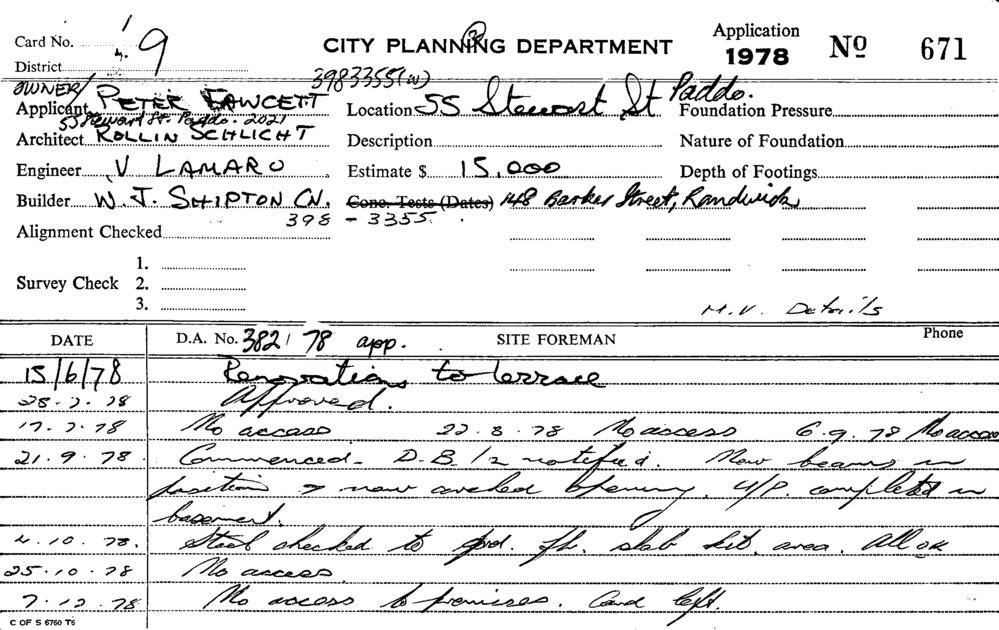 Card No. 9
CITY PLANNING DEPARTMENT
Application
1978 Nº 671
District
OWNER/ 3983355(W)
Applicant PETER FAWCETT Location 55 Stewart St Paddo. Foundation Pressure
55 Stewart St. Paddo. 2021
Architect ROLLIN SCHLICHT Description Nature of Foundation
Engineer V LAMARO Estimate $ 15,000 Depth of Footings
Builder W. J. SHIPTON CN. Conc. Tests (Dates) 148 Barker Street, Randwick
398 - 3355
Alignment Checked
1.
Survey Check 2.
3.
M.V. Details
DATE D.A. No. 382/78 app. SITE FOREMAN Phone
15/6/78 Renovations to terrace
28.7.78 Approved.
17.7.78 No access 22.8.78 No access 6.9.78 No access
21.9.78 Commenced. D.B. 1/2 notified. New beams in
position & new arched opening. U/P. completed in
basement.
4.10.78. Steel checked to grd. flr. slab kit. area. All OK
25.10.78 No access.
7.12.78 No access to premises. Card left.
C OF S 6760 T6